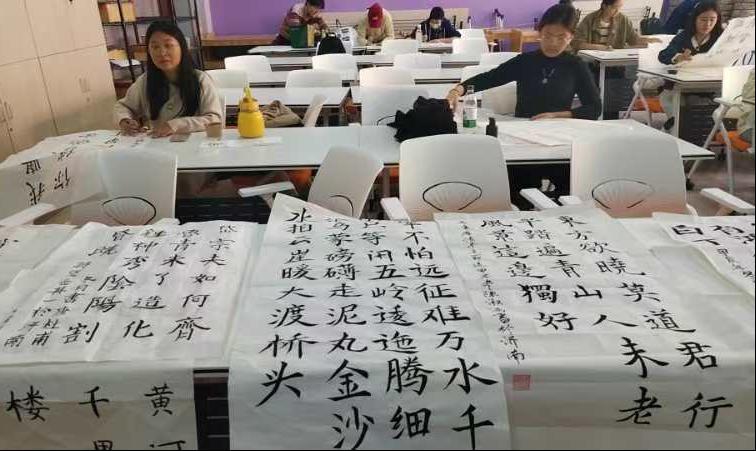 岱宗夫如何齊
青未了造化
鍾神秀陰陽割
昏曉
军不怕远征难万水千
只等闲五岭逶迤腾细
蒙磅礴走泥丸金沙
水拍云崖暖大渡桥头
東方欲曉莫道君行
早踏遍青山人未老
風景這邊獨好
黄河
千里
楼